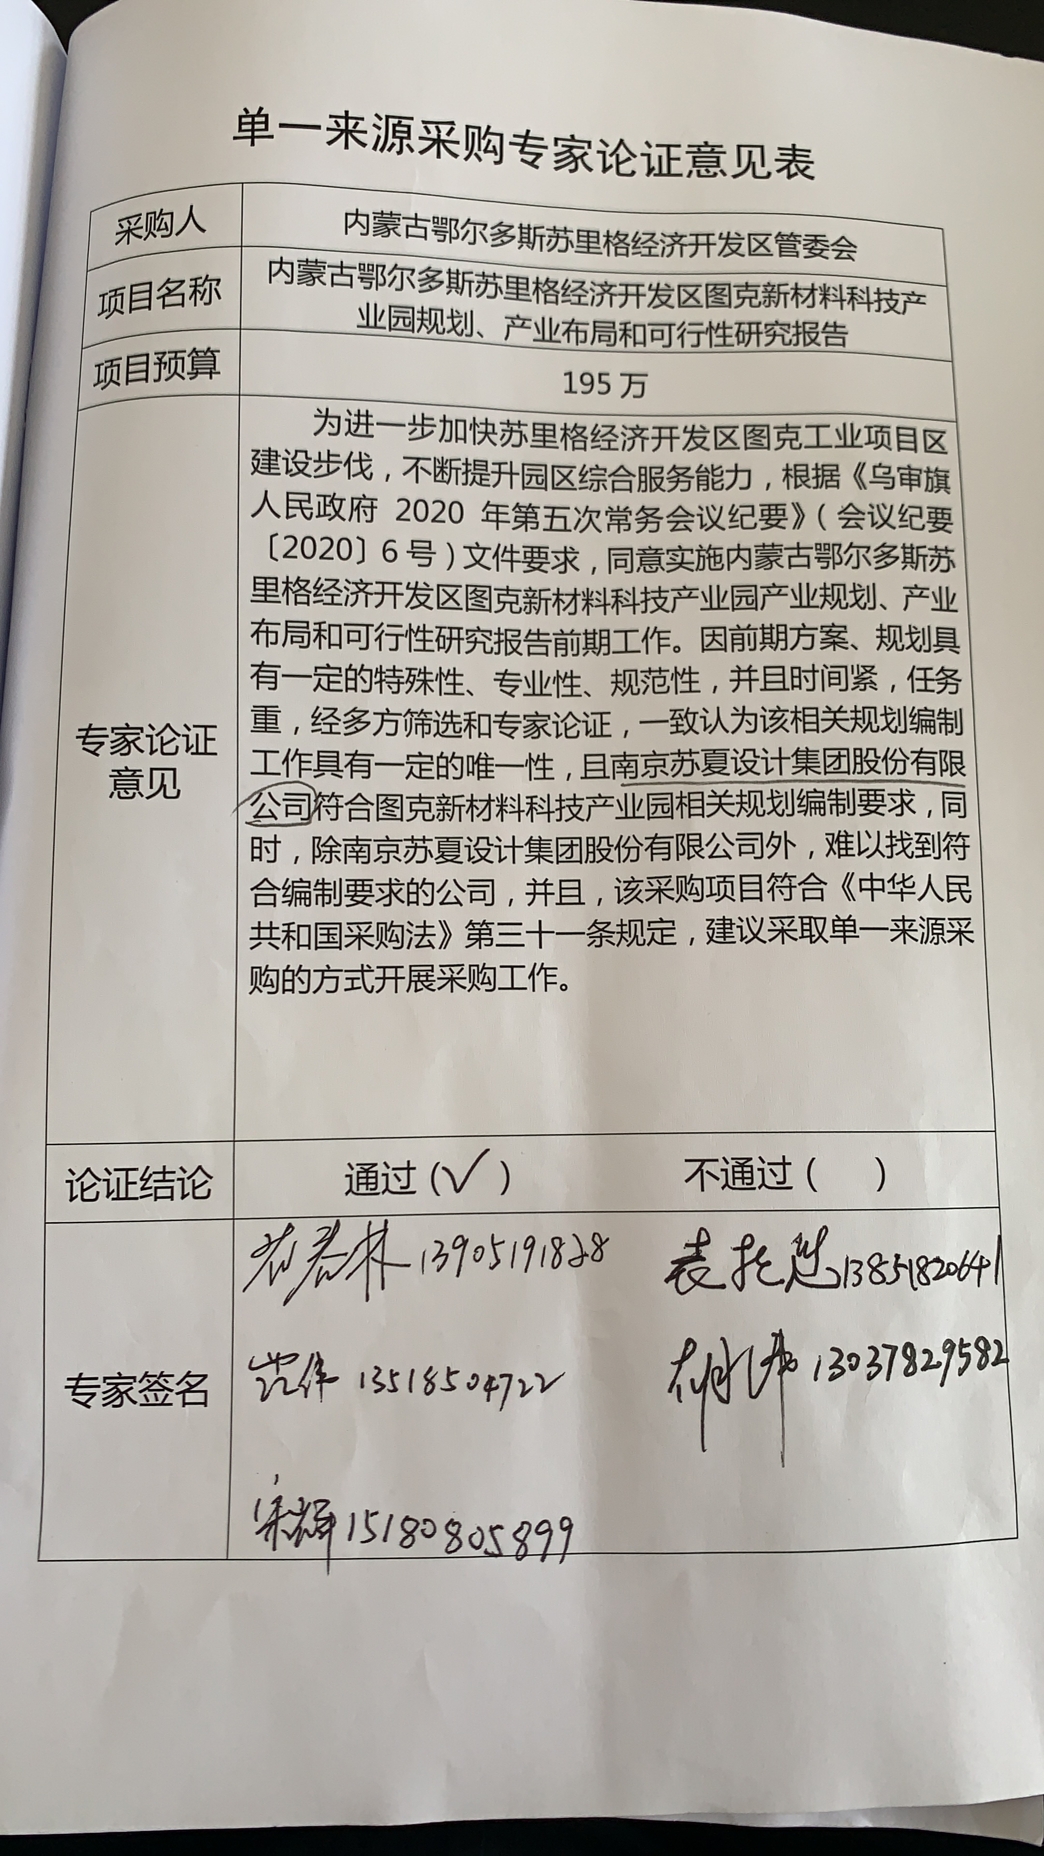 单一来源采购专家论证意见表
采购人
内蒙古鄂尔多斯苏里格经济开发区管委会
项目名称
内蒙古鄂尔多斯苏里格经济开发区图克新材料科技产
业园规划、产业布局和可行性研究报告
项目预算
195 万
专家论证
意见
为进一步加快苏里格经济开发区图克工业项目区
建设步伐，不断提升园区综合服务能力，根据《乌审旗
人民政府 2020 年第五次常务会议纪要》（会议纪要
〔2020〕6 号）文件要求，同意实施内蒙古鄂尔多斯苏
里格经济开发区图克新材料科技产业园产业规划、产业
布局和可行性研究报告前期工作。因前期方案、规划具
有一定的特殊性、专业性、规范性，并且时间紧，任务
重，经多方筛选和专家论证，一致认为该相关规划编制
工作具有一定的唯一性，且南京苏夏设计集团股份有限
公司符合图克新材料科技产业园相关规划编制要求，同
时，除南京苏夏设计集团股份有限公司外，难以找到符
合编制要求的公司，并且，该采购项目符合《中华人民
共和国采购法》第三十一条规定，建议采取单一来源采
购的方式开展采购工作。
论证结论
通过（✓）
不通过（ ）
专家签名
13905191828
13851820641
13518504722
13037829582
15180805899